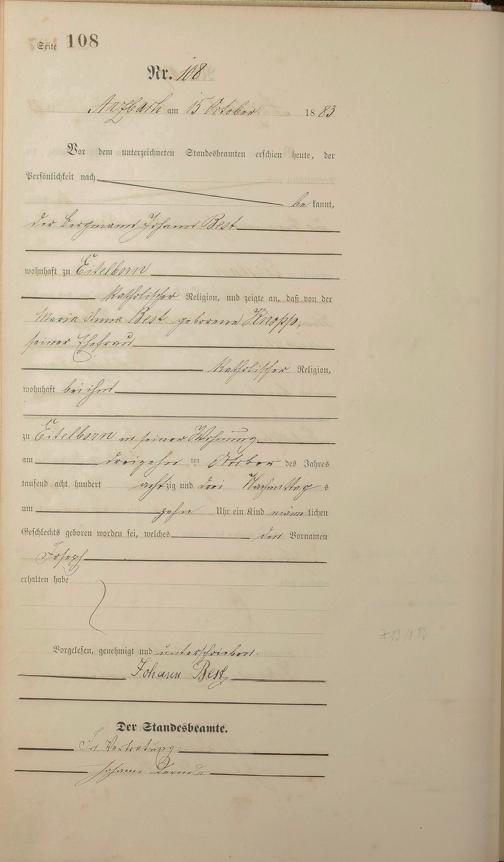 Seite 108
Nr. 108
Arzbach am 15 October 1883
Vor dem unterzeichneten Standesbeamten erschien heute, der
Persönlichkeit nach
be kannt,
der Bergmann Johann Best
wohnhaft zu Eitelborn
katholischer Religion, und zeigte an, daß von der
Maria Anna Best geborene Knopp,
seiner Ehefrau
katholischer Religion,
wohnhaft bei ihm
zu Eitelborn in seiner Wohnung
am dreizehn ten October des Jahres
tausend acht hundert achtzig und drei Nachmittags
um zehn Uhr ein Kind männlichen
Geschlechts geboren worden sei, welches den Vornamen
Joseph
erhalten habe
Vorgelesen, genehmigt und unterschrieben.
Johann Best
Der Standesbeamte.
In Vertretung
Johann